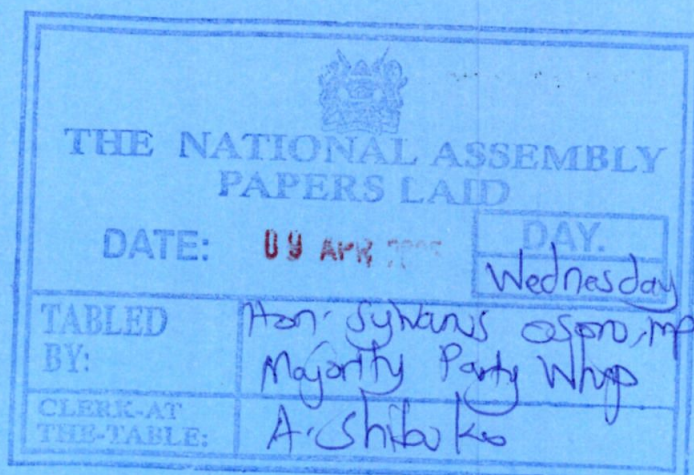 THE NATIONAL ASSEMBLY
PAPERS LAID
DATE: 09 APR
DAY.
Wednesday
TABLED BY:
Hon. Sylvanus Osoro, MP
Majority Party Whip
CLERK-AT THE-TABLE:
A. Shibuko